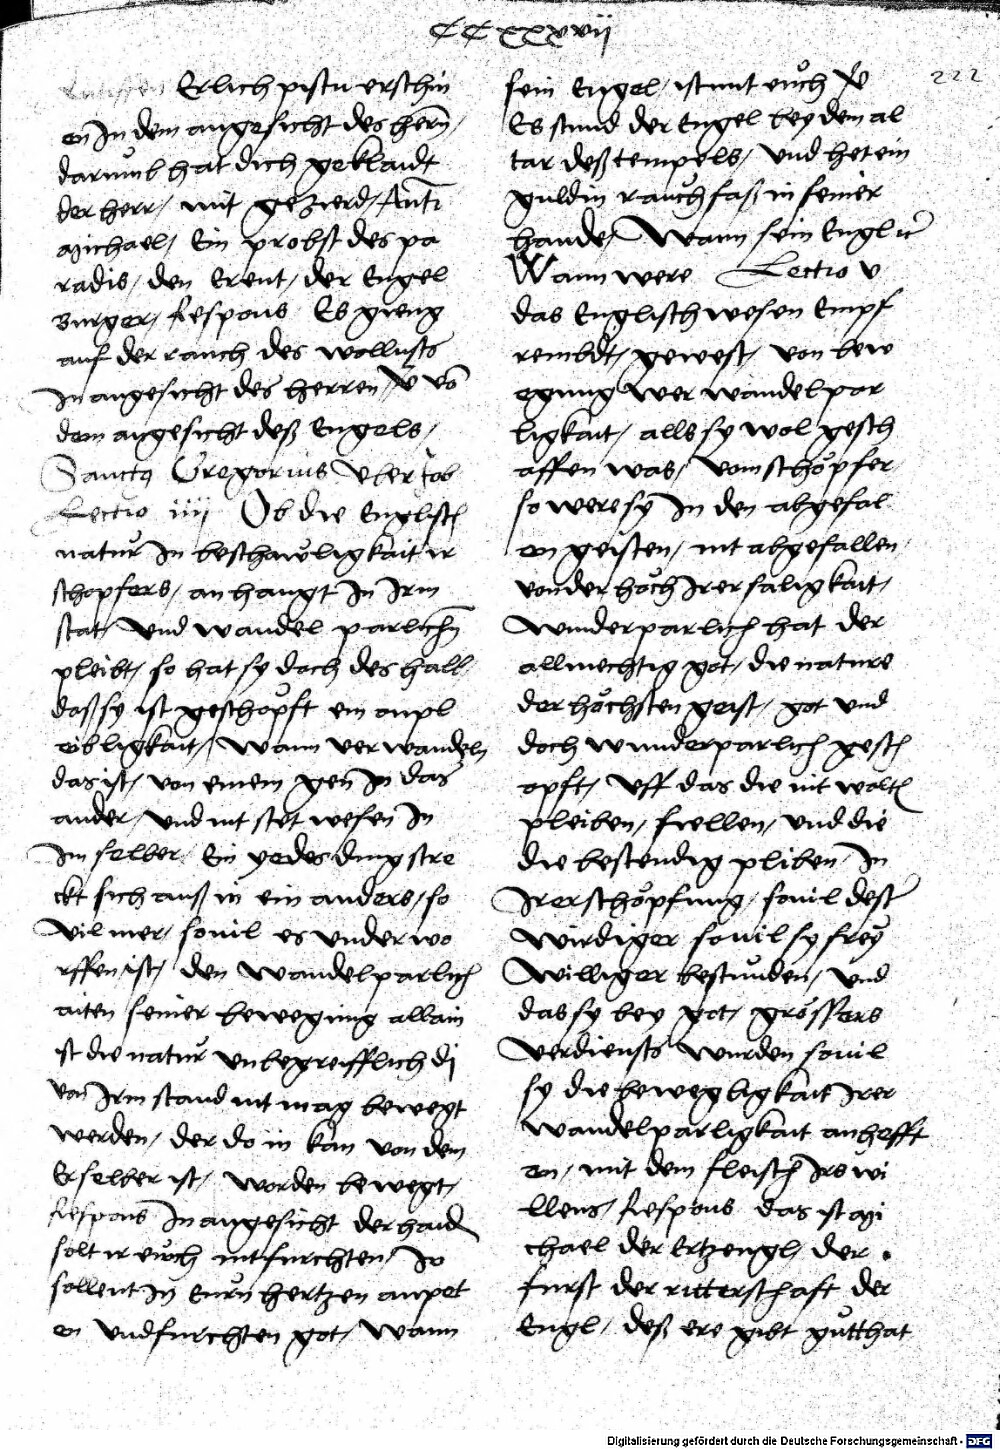 CCxxxvii
222
Erlich pistu erschin
en In dem angesicht des hern /
darumb hat dich geklaidt
der herr / mit gezierd / Anti
Michael / Ein probst des pa
radis / den Erent / der Engel
Burger / Respons Es gieng
auf der rauch des wollusts
In angesicht des herren / V vo
dem angesicht deß Engels /
Sancte Gregorius vber Job
Lectio iiij Ob die Englisch
natur In beschaůligkait ir
schopfers / an hangt In Irm
stat / Und wandel parlichn
pleibt / so hat sy doch des hall
daß sy ist geschöpft ein anpl
eibligkait / Wann verwandeln
das ist / von einem gen In das
ander / und nit stet wesen In
Im selber / Ein yedes ding stre
ckt sich auß in ein anders / so
vil mer / souil es underwo
rffen ist / den wandelparlich
aiten seiner bewegung allain
ist die natur unbegreifflich di
von Irm stand nit mag bewegt
werden / der do in kan von dem
Er selber ist / worden bewegt /
Respons In angesicht der haid
solt ir euch nit furchten / Ir
sollent In Eurn hertzen anpet
en und furchten got / Wann
sein Engel / ist mit euch V
Es stund der Engel bey dem al
tar deß tempels / Und het ein
guldin rauchfas in seiner
hande / Wann sein Engl ic
Wann were Lectio v
das Englisch wesen Empf
rembdt / gewest / von bew
egung Wer wandelpar
ligkait / alls sy wol gesch
affen was / vom schöpfer
so were sy In den abgefal
en geisten / nit abgefallen
von der höch Irer saligkait /
Wunderparlich hat der
allmechtig got / die nature
der höchsten geist / got und
doch wunderparlich gesch
opft / Uff das die nit wolt
pleiben / fiellen / und die
die bestendig pliben / In
Irer schöpfung / souil dest
wirdiger souil sy frey
williger bestunden / und
das sy bey got / grössers
verdiensts wurden souil
sy die bewegligkait Irer
wandelparligkait anhefft
en / mit dem fleisch Irs wi
llens / Respons das ist Mi
chael der Ertzengl / der
furst der ritterschaft der
Engl / deß ere gibt gutthat
Digitalisierung gefördert durch die Deutsche Forschungsgemeinschaft - DFG